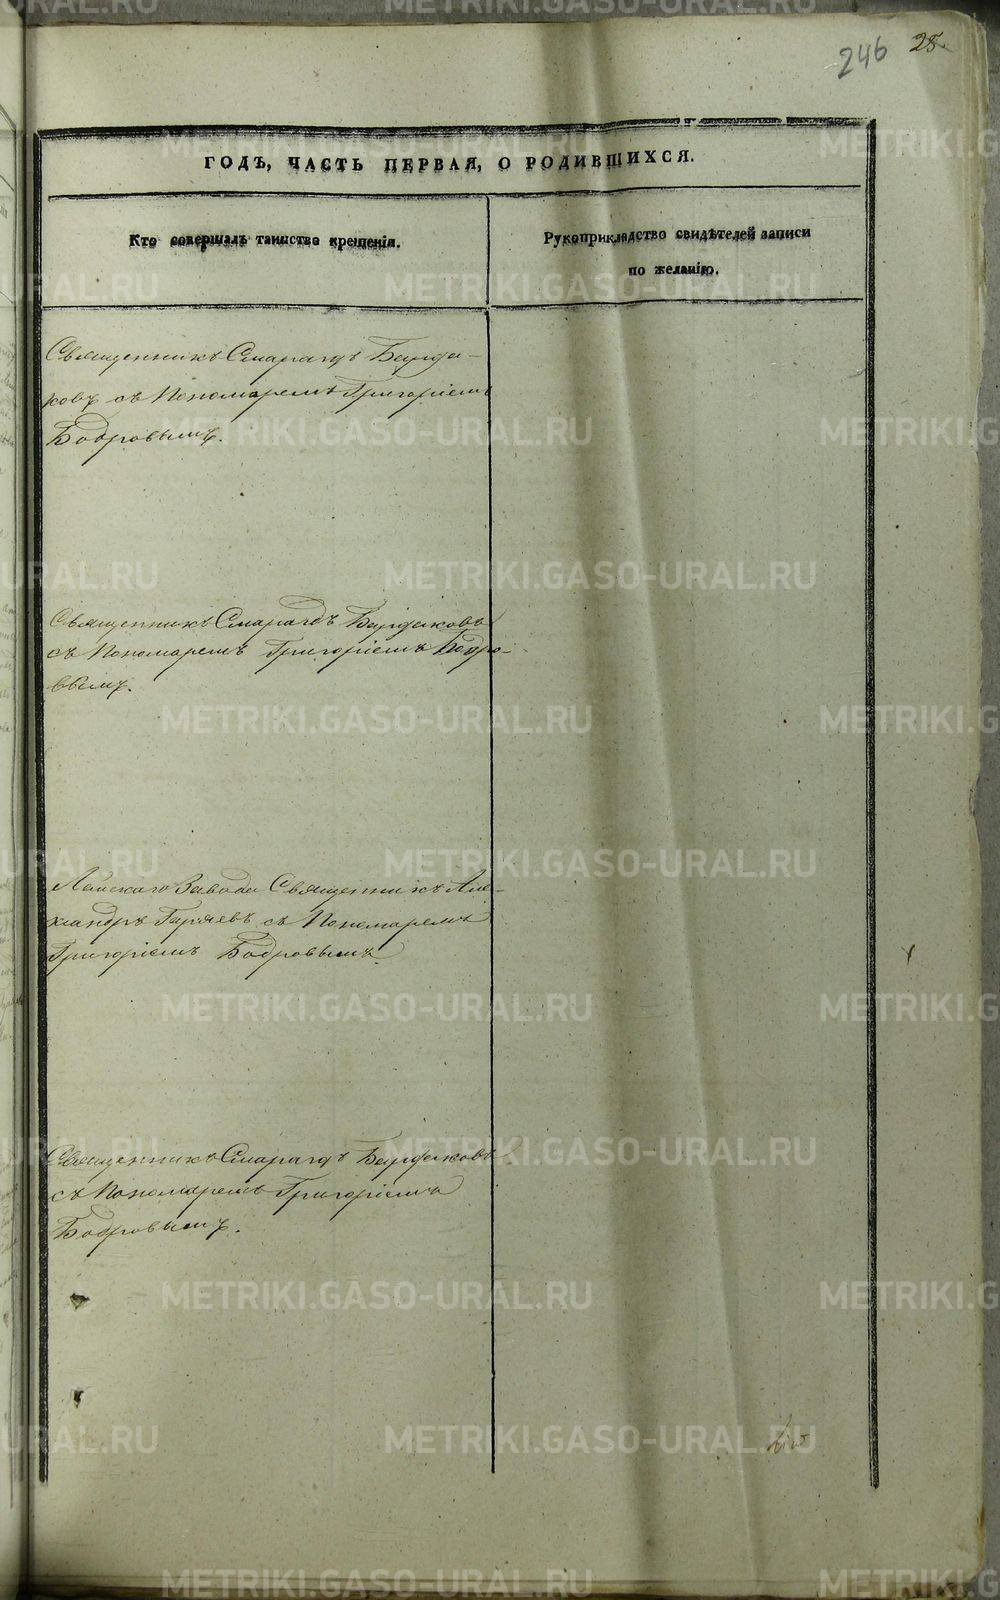 246 25.
ГОДЪ, ЧАСТЬ ПЕРВАЯ, О РОДИВШИХСЯ.
Кто совершалъ таинство крещенія.
Рукоприкладство свидѣтелей записи
по желанію.
Священникъ Смарагдъ Бирдю-
ковъ съ Пономаремъ Григоріемъ
Бодровымъ.
Священникъ Смарагдъ Бирдюковъ
съ Пономаремъ Григоріемъ Бодро-
вымъ.
Завода Священникъ Але-
ксандръ Гаряевъ съ Пономаремъ
Григоріемъ Бодровымъ.
Священникъ Смарагдъ Бирдюковъ
съ Пономаремъ Григоріемъ
Бодровымъ.
METRIKI.GASO-URAL.RU